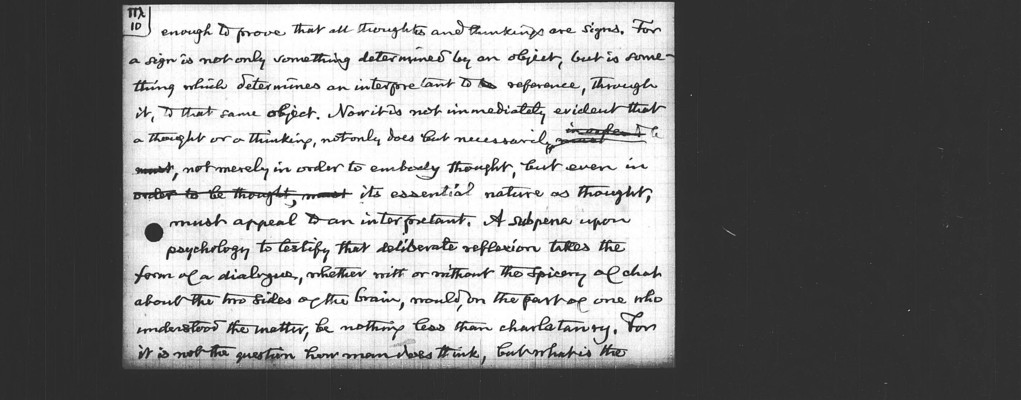 III
10
enough to prove that all thoughts and thinkings are signs. For
a sign is not only something determined by an object, but is some-
thing which determines an interpretant to reference, through
it, to that same object. Now it is not immediately evident that
a thought or a thinking, not only does but necessarily must
must, not merely in order to embody thought, but even in
order to be thought, must its essential nature as thought,
must appeal to an interpretant. A subpena upon
psychology to testify that deliberate reflexion takes the
form of a dialogue, whether with or without the spicery of chat
about the two sides of the brain, would, on the part of one who
understood the matter, be nothing less than charlatanry. For
it is not the question how man does think, but what is the